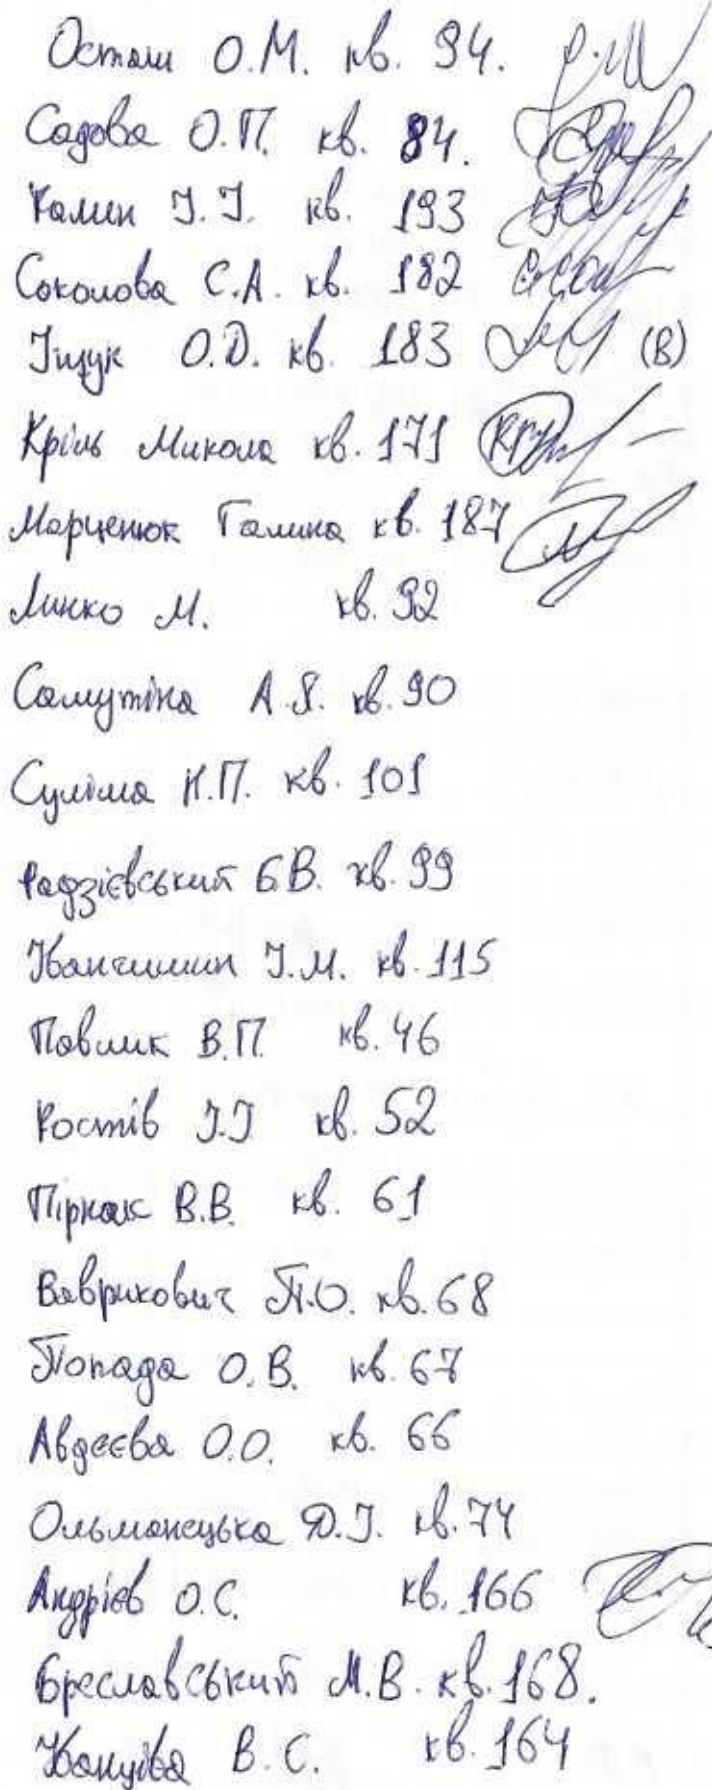 Осташ О.М. кв. 94.
Садова О.П. кв. 84.
І.І. кв. 193
Соколова С.А. кв. 182
Іщук О.Д. кв. 183 (В)
Кріль Микола кв. 171
Марценюк Галина кв. 187
Линко М. кв. 92
Самутіна А.Я. кв. 90
Суліма Н.П. кв. 101
Радзієвський Б.В. кв. 99
Іванчишин І.М. кв. 115
Павлик В.П. кв. 46
Костів І.І кв. 52
Пірнак В.В. кв. 61
Ваврикович Л.О. кв. 68
Лопада О.В. кв. 67
Авдєєва О.О. кв. 66
Ольманецька Д.І. кв. 74
Андрієв О.С. кв. 166
Бреславський М.В. кв. 168.
В.С. кв. 164